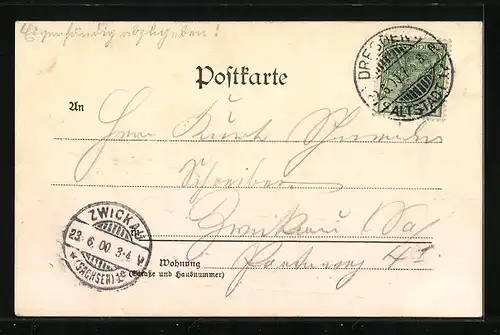 Eigenhändig abzugeben!
DRESDEN
ALTSTADT
Postkarte
An
Herrn Kurt
Schreiber
Zwickau (Sa)
ZWICKAU
23 6 00 3-4 V
* (SACHSEN) 1c
Wohnung
(Straße und Hausnummer)